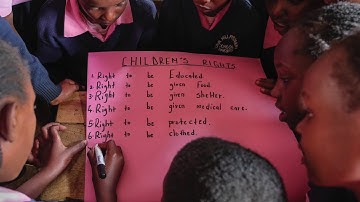 CHILDREN'S RIGHTS
1. Right to be Educated
2. Right to be given food.
3. Right to be given shelter.
4. Right to be given medical care.
5. Right to be protected.
6. Right to be clothed.